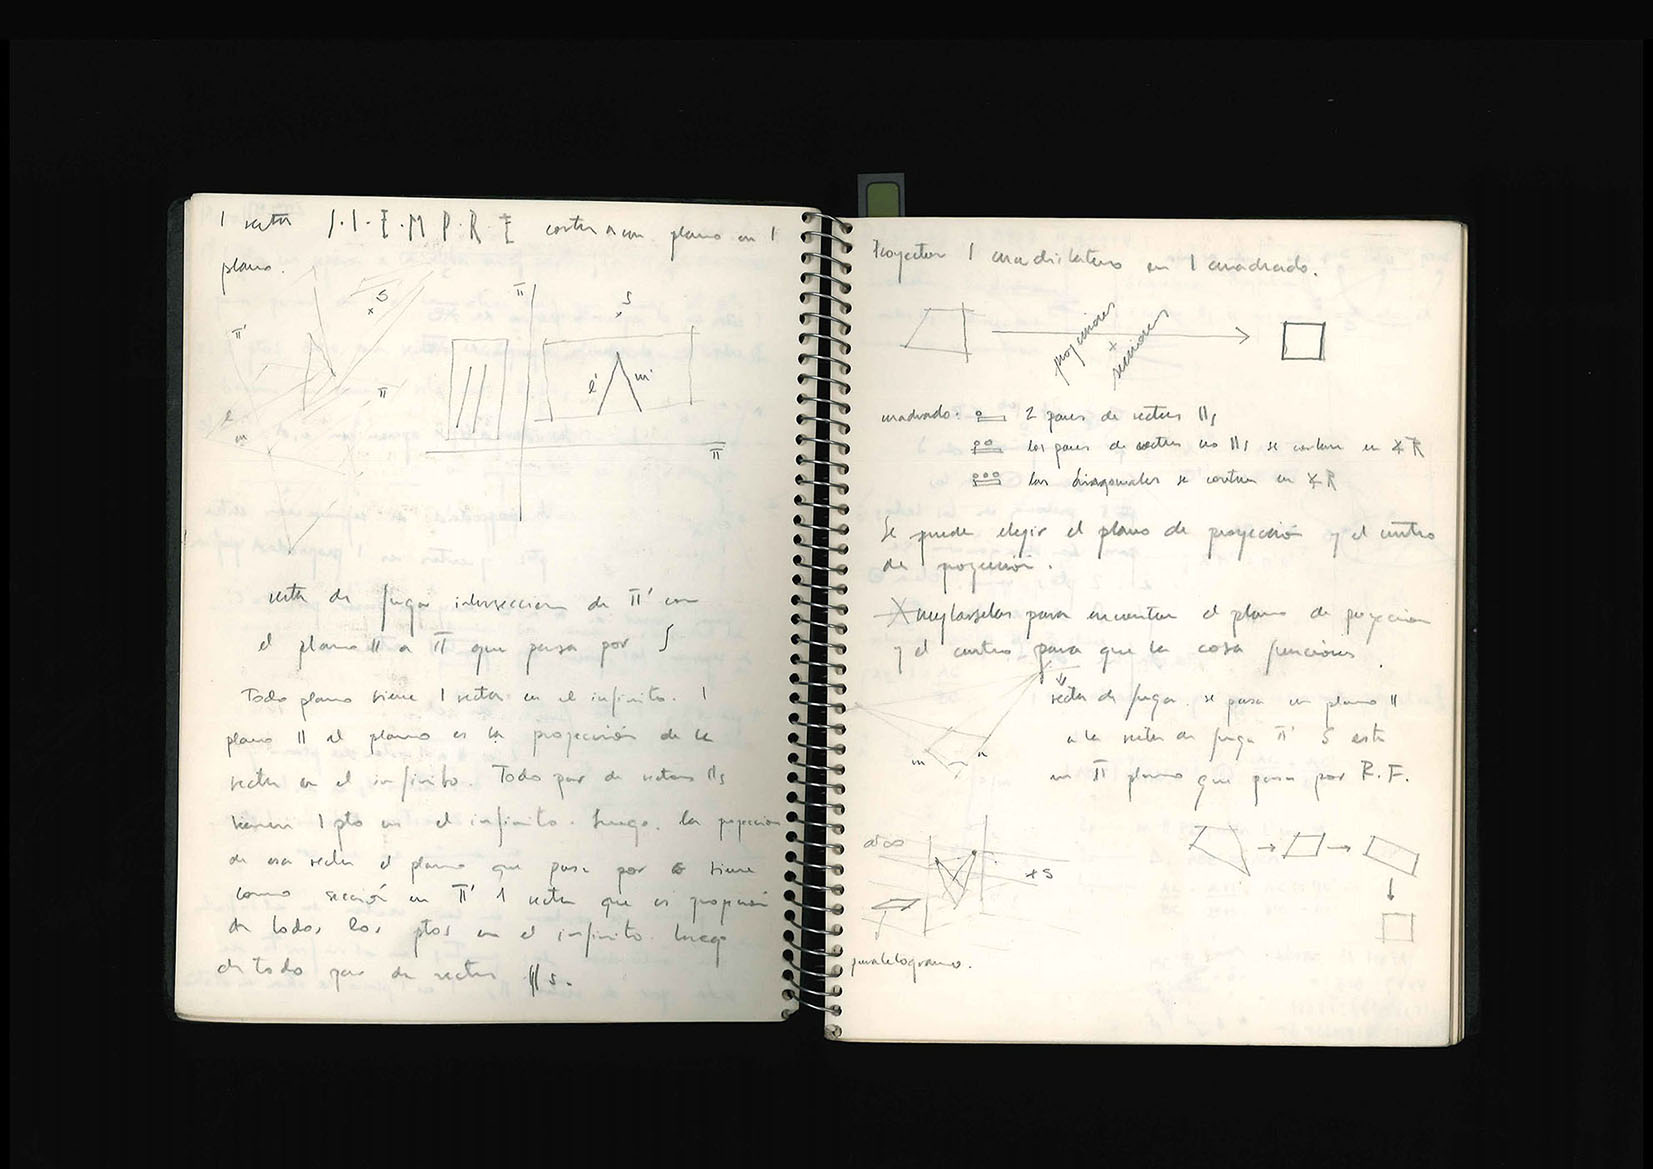 1 recta S.I.E.M.P.R.E corta a un plano en 1
plano.
S
π'
π
l
m
π
S
l'
m'
π
recta de fuga intersección de π' con
el plano || a π que pasa por S
Todo plano tiene 1 recta en el infinito. 1
plano || al plano es la proyección de la
recta en el infinito. Todo par de rectas ||s
tienen 1 pto en el infinito. Luego, la proyección
de esa recta el plano que pasa por S tiene
como sección en π' 1 recta que es proyección
de todos los ptos en el infinito. Luego
de todo par de rectas ||s.
Proyectar 1 cuadrilatero en 1 cuadrado.
proyecciones
+
secciones
cuadrado: 2 pares de rectas ||s
los pares de rectas no ||s se cortan en ∡R
las diagonales se cortan en ∡R
Se puede elegir el plano de proyección y el centro
de proyección.
Arreglarselas para encontrar el plano de proyección
y el centro para que la cosa funcione.
recta de fuga. se pasa un plano ||
a la recta de fuga π' S está
en π plano que pasa por R.F.
m
n
al ∞
+S
paralelogramo.